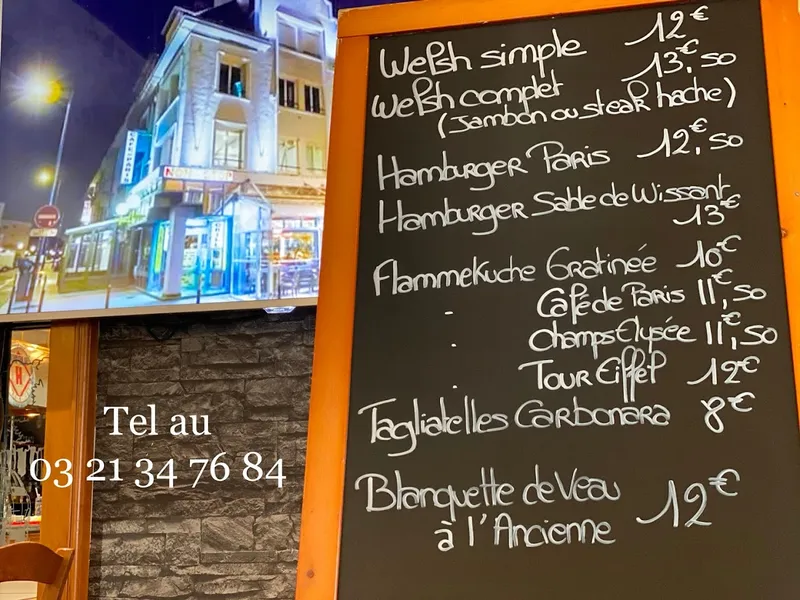 CAFE de PARIS
Welsh simple 12€
Welsh complet 13€,50
(Jambon ou steak haché)
Hamburger Paris 12€,50
Hamburger Sable de Wissant
13€
Flammekuche Gratinée 10€
- Café de Paris 11€,50
- Champs Elysée 11€,50
- Tour Eiffel 12€
Tagliatelles Carbonara 8€
Blanquette de Veau
à l'Ancienne 12€
Tel au
03 21 34 76 84
H